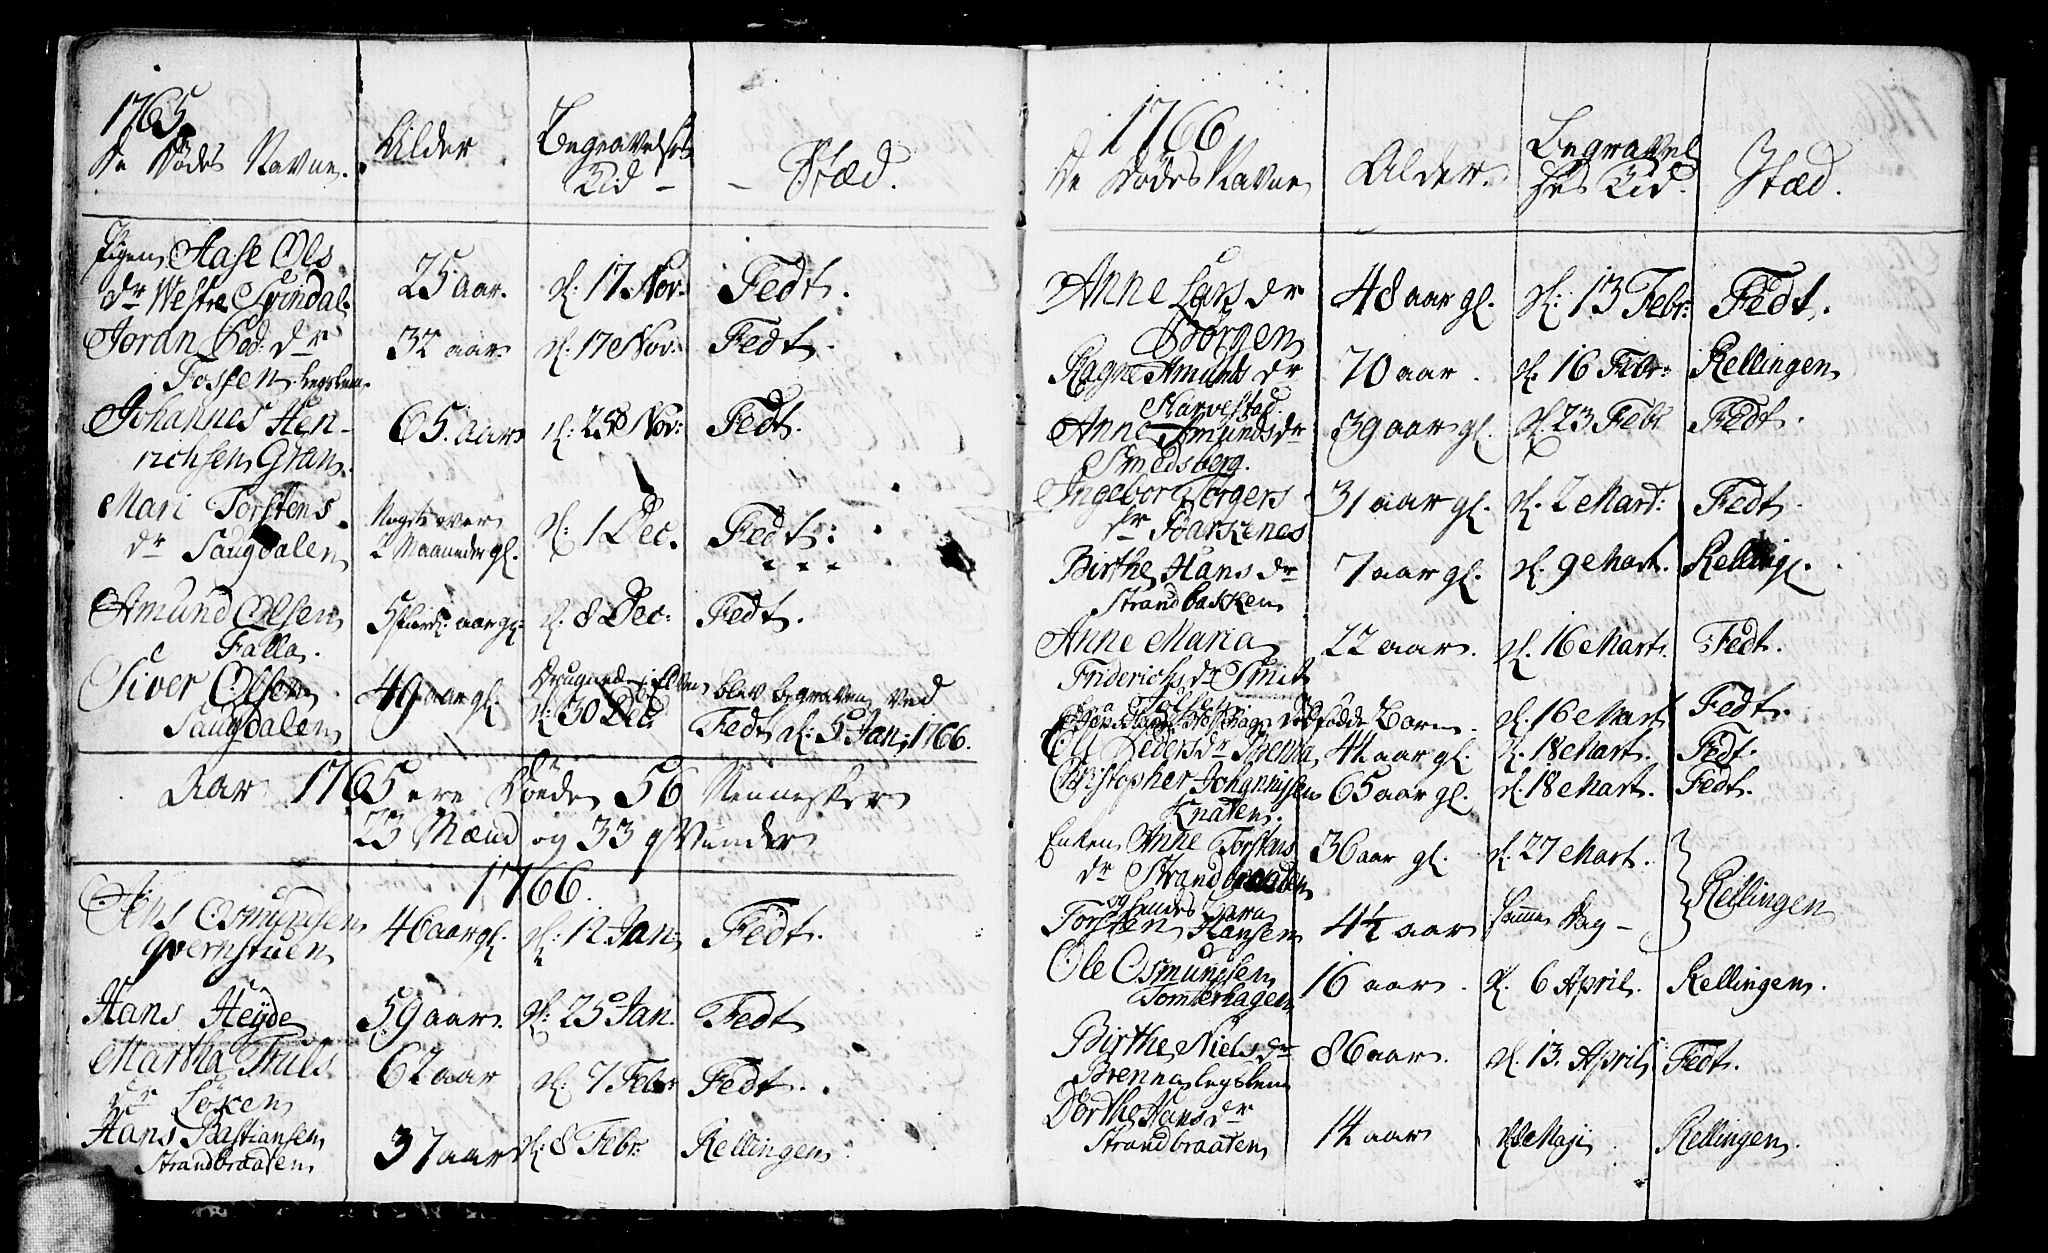 1765.
De Dödes Navne. Alder Begravelses Tid - - Stæd.
Pigen Aase Ols
dr Westre Svindal. 25 aar. d: 17 Nov: Fedt.
Joran Ped: dr
Fossen Legslem. 32 aar d. 17 Nov: Fedt.
Johannes Hen-
richsen Gran. 65. aar d: 25 Nov: Fedt.
Mari Torstens
dr Saugdalen Nogst over
2 Maaneder gl. d: 1 Dec. Fedt:
Amund Olsen
Falla. aar gl: d. 8 Dec: Fedt.
Siver Olsen
Saugdalen 49 aar gl. Drugned i Elven
d: 30 Dec blev begraven ved
Fedt d: 5 Jan: 1766.
Aar 1765 ere Döede 56 Mennesker
23 Mænd og 33 qvinder
1766.
Jens Osmundsen
qvernstuen 46 aar gl. d: 12 Jan: Fedt.
Hans Heyde 59 aar. d: 25 Jan. Fedt
Martha Truls
dr Løken 62 aar d: 7 Febr Fedt.
Hans Bastiansen
Strandbraaten 37 aar d: 8 Febr: Rellingen
1766
De Dödes Navne Alder. Begravel
ses Tid. Stæd.
Anne Lars dr
Börgen 48 aar gl. d: 13 Febr: Fedt.
Ragne Amunds dr
Skarvestad. 70 aar. d. 16 Febr: Rellingen
Anne Amunds dr
Smedsberg. 39 aar gl. d. 23 Febr Fedt.
Ingebor Börgers
dr Haakenes 31 aar gl. d. 2 Mart: Fedt.
Birthe Hans dr
Strandbakken 7 aar gl. d. 9 Mart. Relling.
Anne Maria
Friderichs dr Smit 22 aar. d. 16 Mart. Fedt.
dödfödde Barn. d. 16 Mart Fedt.
Peders dr Brenna 42 aar gl. d. 18 Mart. Fedt.
Christopher Johannissen
Knaten. 65 aar gl. d. 18 Mart. Fedt.
Enken Anne Torstens
dr Strandbraaten 36 aar gl. d. 27 Mart.
og hendes barn
Torsten Hansen 4½ aar samme dag - Rellingen
Ole Osmundsen
Tomterhagen 16 aar. d. 6 April. Rellingen.
Birthe Niels dr
Brenna Legslem 86 aar. d. 13. April Fedt.
Dorthe Hans dr
Strandbraaten 14 aar Maji Rellingen.